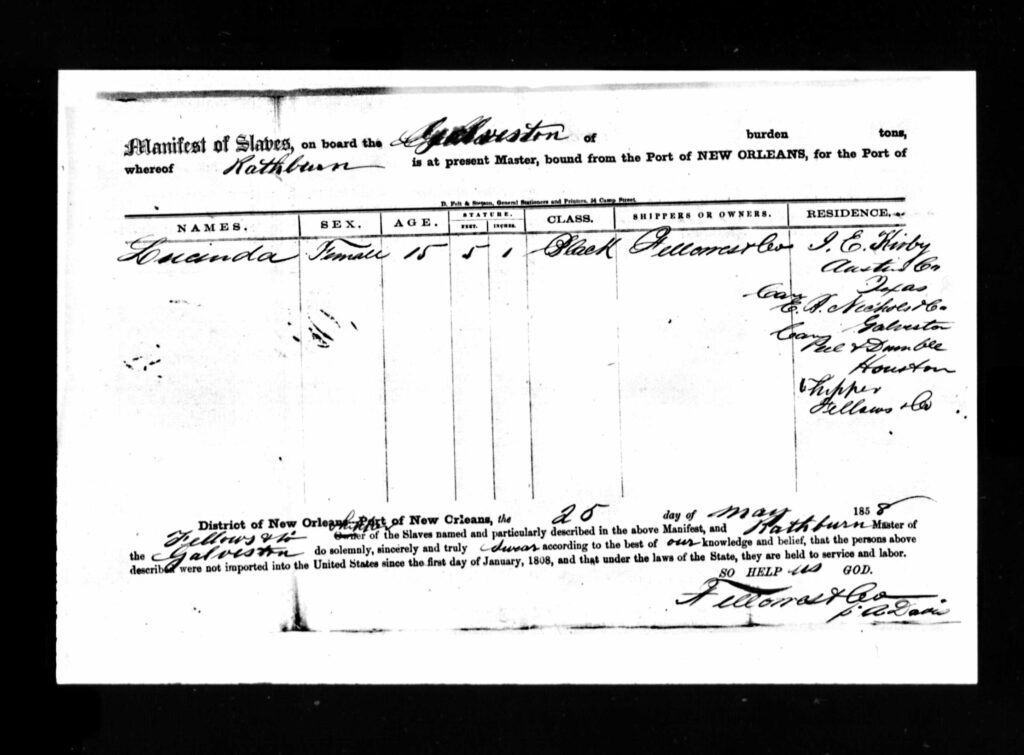 Manifest of Slaves, on board the Galveston of burden tons,
whereof Rathburn is at present Master, bound from the Port of NEW ORLEANS, for the Port of
D. Felt & Stetson, General Stationers and Printers, 24 Camp Street.
NAMES. SEX. AGE. STATURE. FEET. INCHES. CLASS. SHIPPERS OR OWNERS. RESIDENCE.
Lucinda Female 15 5 1 Black Fellowes & Co J. E. Kirby
Austin Co
Texas
Care E. A. Nichols & Co
Galveston
Care Peel & Dumble
Houston
Shipper
Fellows & Co
District of New Orleans, Port of New Orleans, the 25 day of May 1858
Fellows & Co shipper Owner of the Slaves named and particularly described in the above Manifest, and Rathburn Master of
the Galveston do solemnly, sincerely and truly swear according to the best of our knowledge and belief, that the persons above
described were not imported into the United States since the first day of January, 1808, and that under the laws of the State, they are held to service and labor.
SO HELP us GOD.
Fellowes & Co
p. A Davis